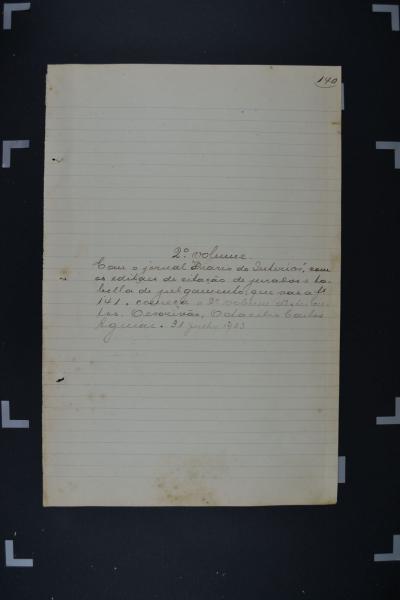 140
2º volume.
Com o jornal "Diario do Interior", com
os editaes de citação de jurados e ta-
bella de julgamento, que vae a fl.
141, começa o 2º volume
tos. O escrivão, Octacilio Carlos
31 julho 1933